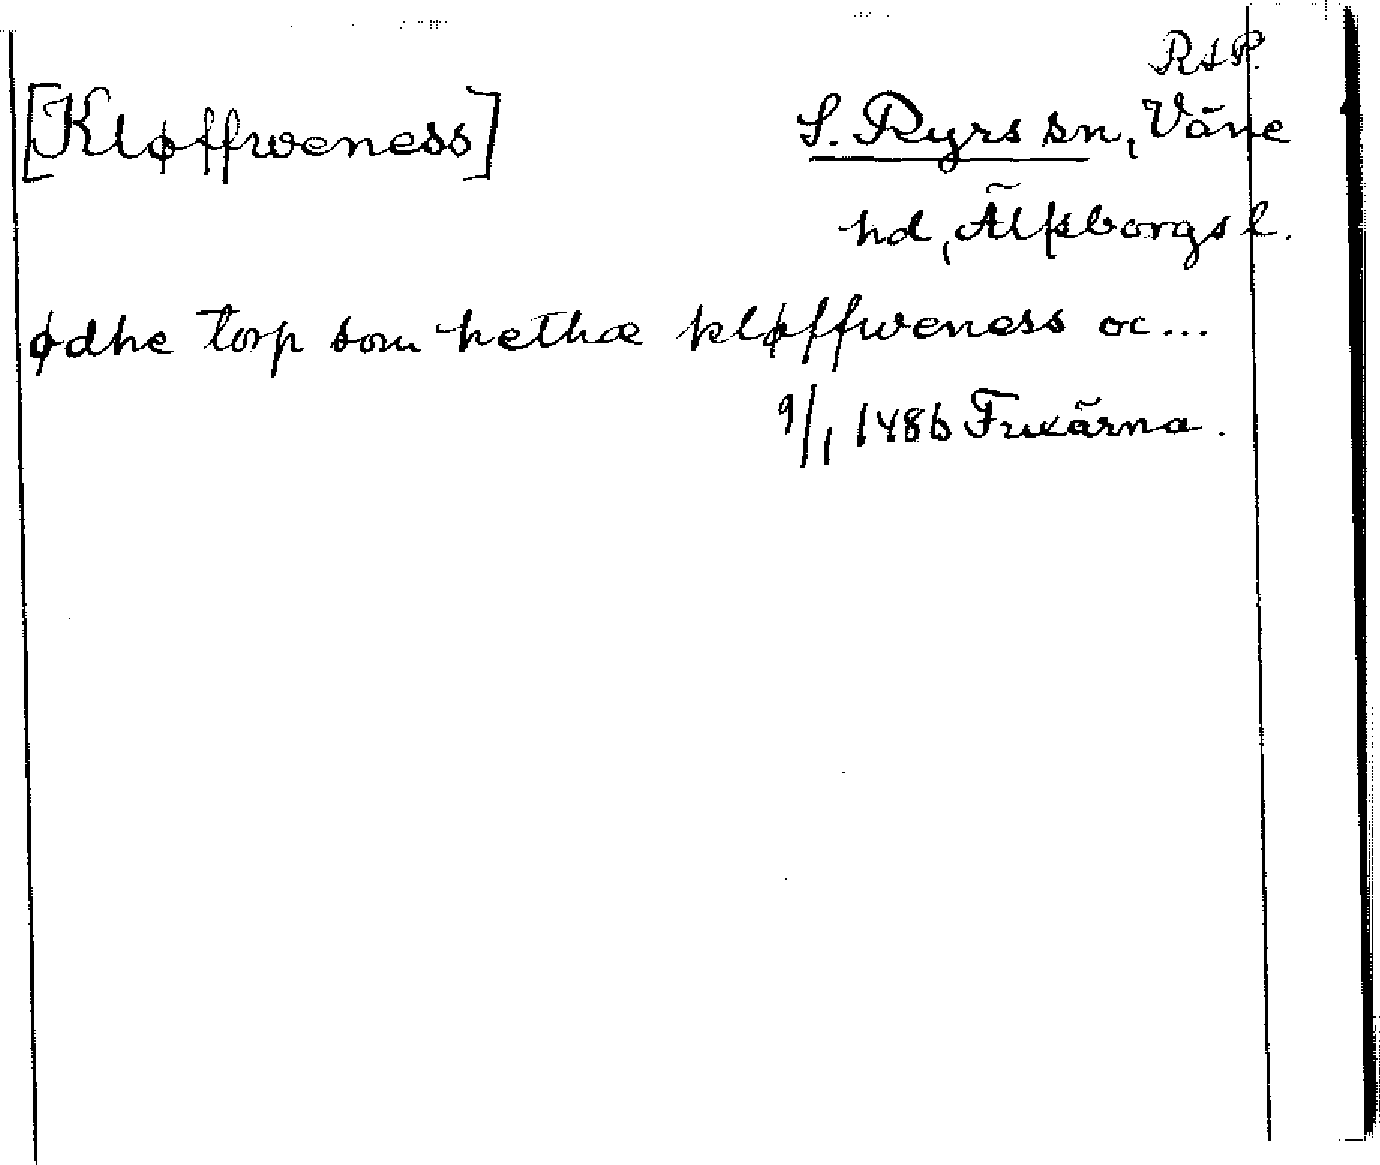 RAP.
[Kløffweness] S. Ryrs sn, Väne
hd, Älfsborgs l.
ødhe torp som hethæ kløffweness oc...
9/1 1486 Fuxärna.